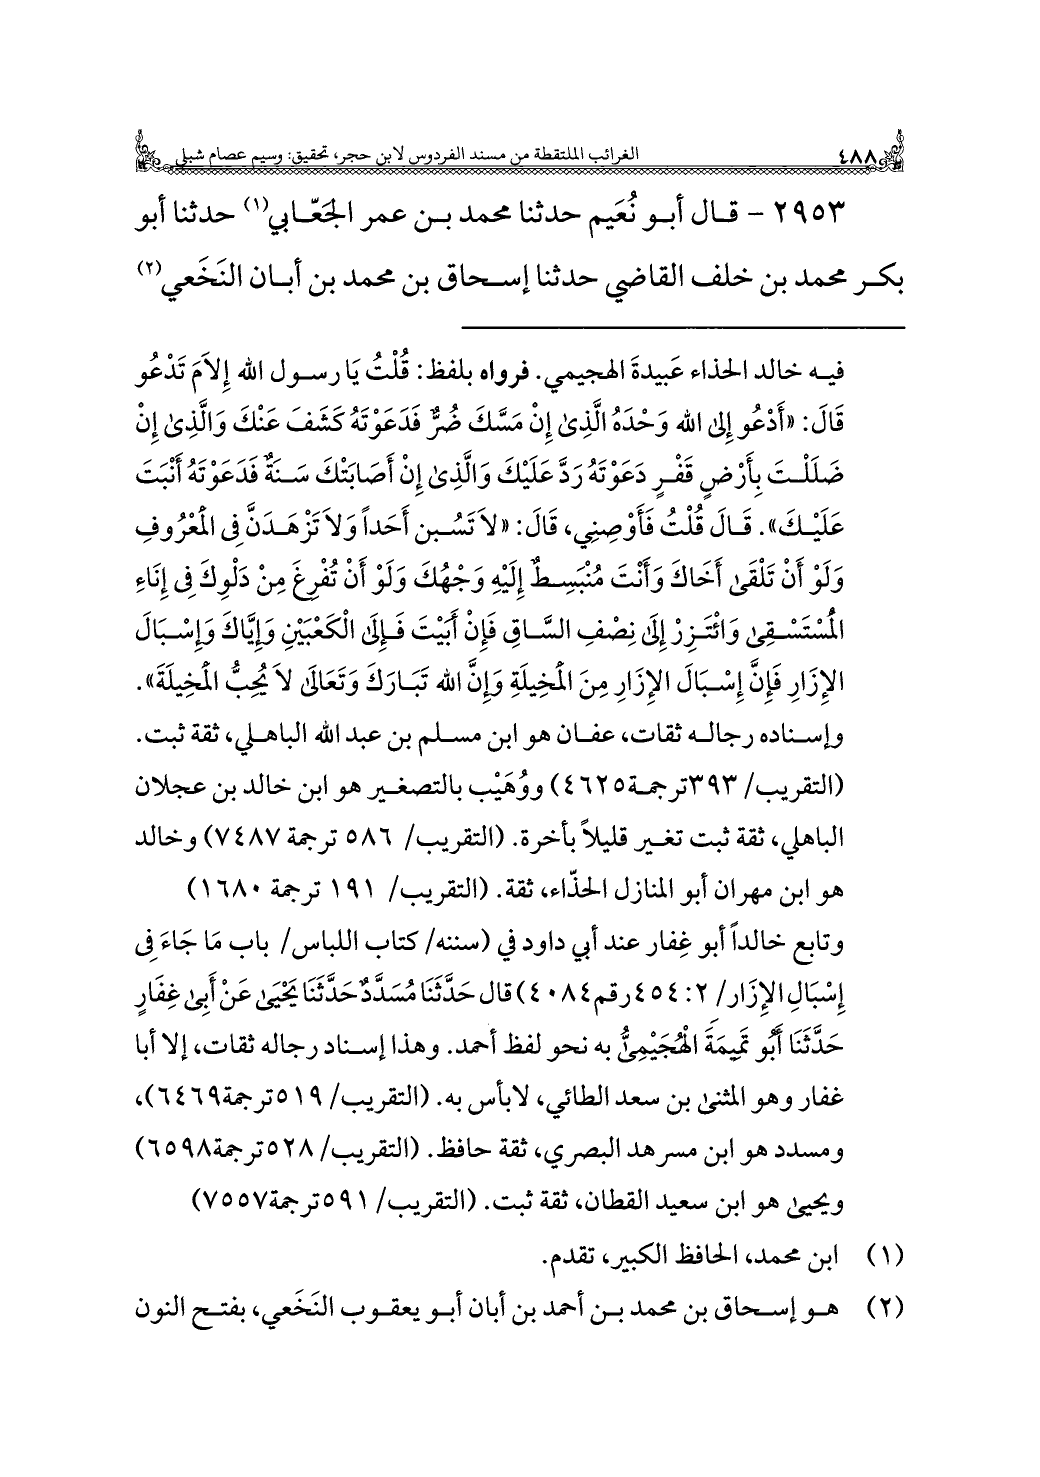 ٤٨٨ الغرائب الملتقطة من مسند الفردوس لابن حجر، تحقيق: وسيم عصام شبلي
٢٩٥٣ - قال أبو نُعَيم حدثنا محمد بن عمر الجَعّابي(١) حدثنا أبو
بكر محمد بن خلف القاضي حدثنا إسحاق بن محمد بن أبان النَخَعي(٢)
فيه خالد الحذاء عَبيدةَ الهجيمي. فرواه بلفظ: قُلْتُ يَا رسول الله إِلَامَ تَدْعُو
قَالَ: «أَدْعُو إِلىٰ الله وَحْدَهُ الَّذِىٰ إِنْ مَسَّكَ ضُرٌّ فَدَعَوْتَهُ كَشَفَ عَنْكَ وَالَّذِىٰ إِنْ
ضَلَلْتَ بِأَرْضٍ قَفْرٍ دَعَوْتَهُ رَدَّ عَلَيْكَ وَالَّذِىٰ إِنْ أَصَابَتْكَ سَنَةٌ فَدَعَوْتَهُ أَنْبَتَ
عَلَيْكَ». قَالَ قُلْتُ فَأَوْصِنِي، قَالَ: «لاَ تَسُبن أَحَداً وَلاَ تَزْهَدَنَّ فِى الْمَعْرُوفِ
وَلَوْ أَنْ تَلْقَىٰ أَخَاكَ وَأَنْتَ مُنْبَسِطٌ إِلَيْهِ وَجْهُكَ وَلَوْ أَنْ تُفْرِغَ مِنْ دَلْوِكَ فِى إِنَاءِ
الْمُسْتَسْقِىٰ وَائْتَزِرْ إِلَىٰ نِصْفِ السَّاقِ فَإِنْ أَبَيْتَ فَإِلَىٰ الْكَعْبَيْنِ وَإِيَّاكَ وَإِسْبَالَ
الإِزَارِ فَإِنَّ إِسْبَالَ الإِزَارِ مِنَ الْمَخِيلَةِ وَإِنَّ الله تَبَارَكَ وَتَعَالَىٰ لاَ يُحِبُّ الْمَخِيلَةَ».
وإسناده رجاله ثقات، عفان هو ابن مسلم بن عبد الله الباهلي، ثقة ثبت.
(التقريب/ ٣٩٣ترجمة٤٦٢٥) ووُهَيْب بالتصغير هو ابن خالد بن عجلان
الباهلي، ثقة ثبت تغير قليلاً بأخرة. (التقريب/ ٥٨٦ ترجمة ٧٤٨٧) وخالد
هو ابن مهران أبو المنازل الحذّاء، ثقة. (التقريب/ ١٩١ ترجمة ١٦٨٠)
وتابع خالداً أبو غِفار عند أبي داود في (سننه/ كتاب اللباس/ باب مَا جَاءَ فِى
إِسْبَالِ الإِزَارِ/ ٢: ٤٥٤رقم٤٠٨٤) قال حَدَّثَنَا مُسَدَّدٌ حَدَّثَنَا يَحْيَىٰ عَنْ أَبِىٰ غِفَارٍ
حَدَّثَنَا أَبُو تَمِيمَةَ الْهُجَيْمِىُّ به نحو لفظ أحمد. وهذا إسناد رجاله ثقات، إلا أبا
غفار وهو المثنىٰ بن سعد الطائي، لابأس به. (التقريب/ ٥١٩ترجمة٦٤٦٩)،
ومسدد هو ابن مسرهد البصري، ثقة حافظ. (التقريب/ ٥٢٨ترجمة٦٥٩٨)
ويحيىٰ هو ابن سعيد القطان، ثقة ثبت. (التقريب/ ٥٩١ترجمة٧٥٥٧)
(١) ابن محمد، الحافظ الكبير، تقدم.
(٢) هو إسحاق بن محمد بن أحمد بن أبان أبو يعقوب النَخَعي، بفتح النون